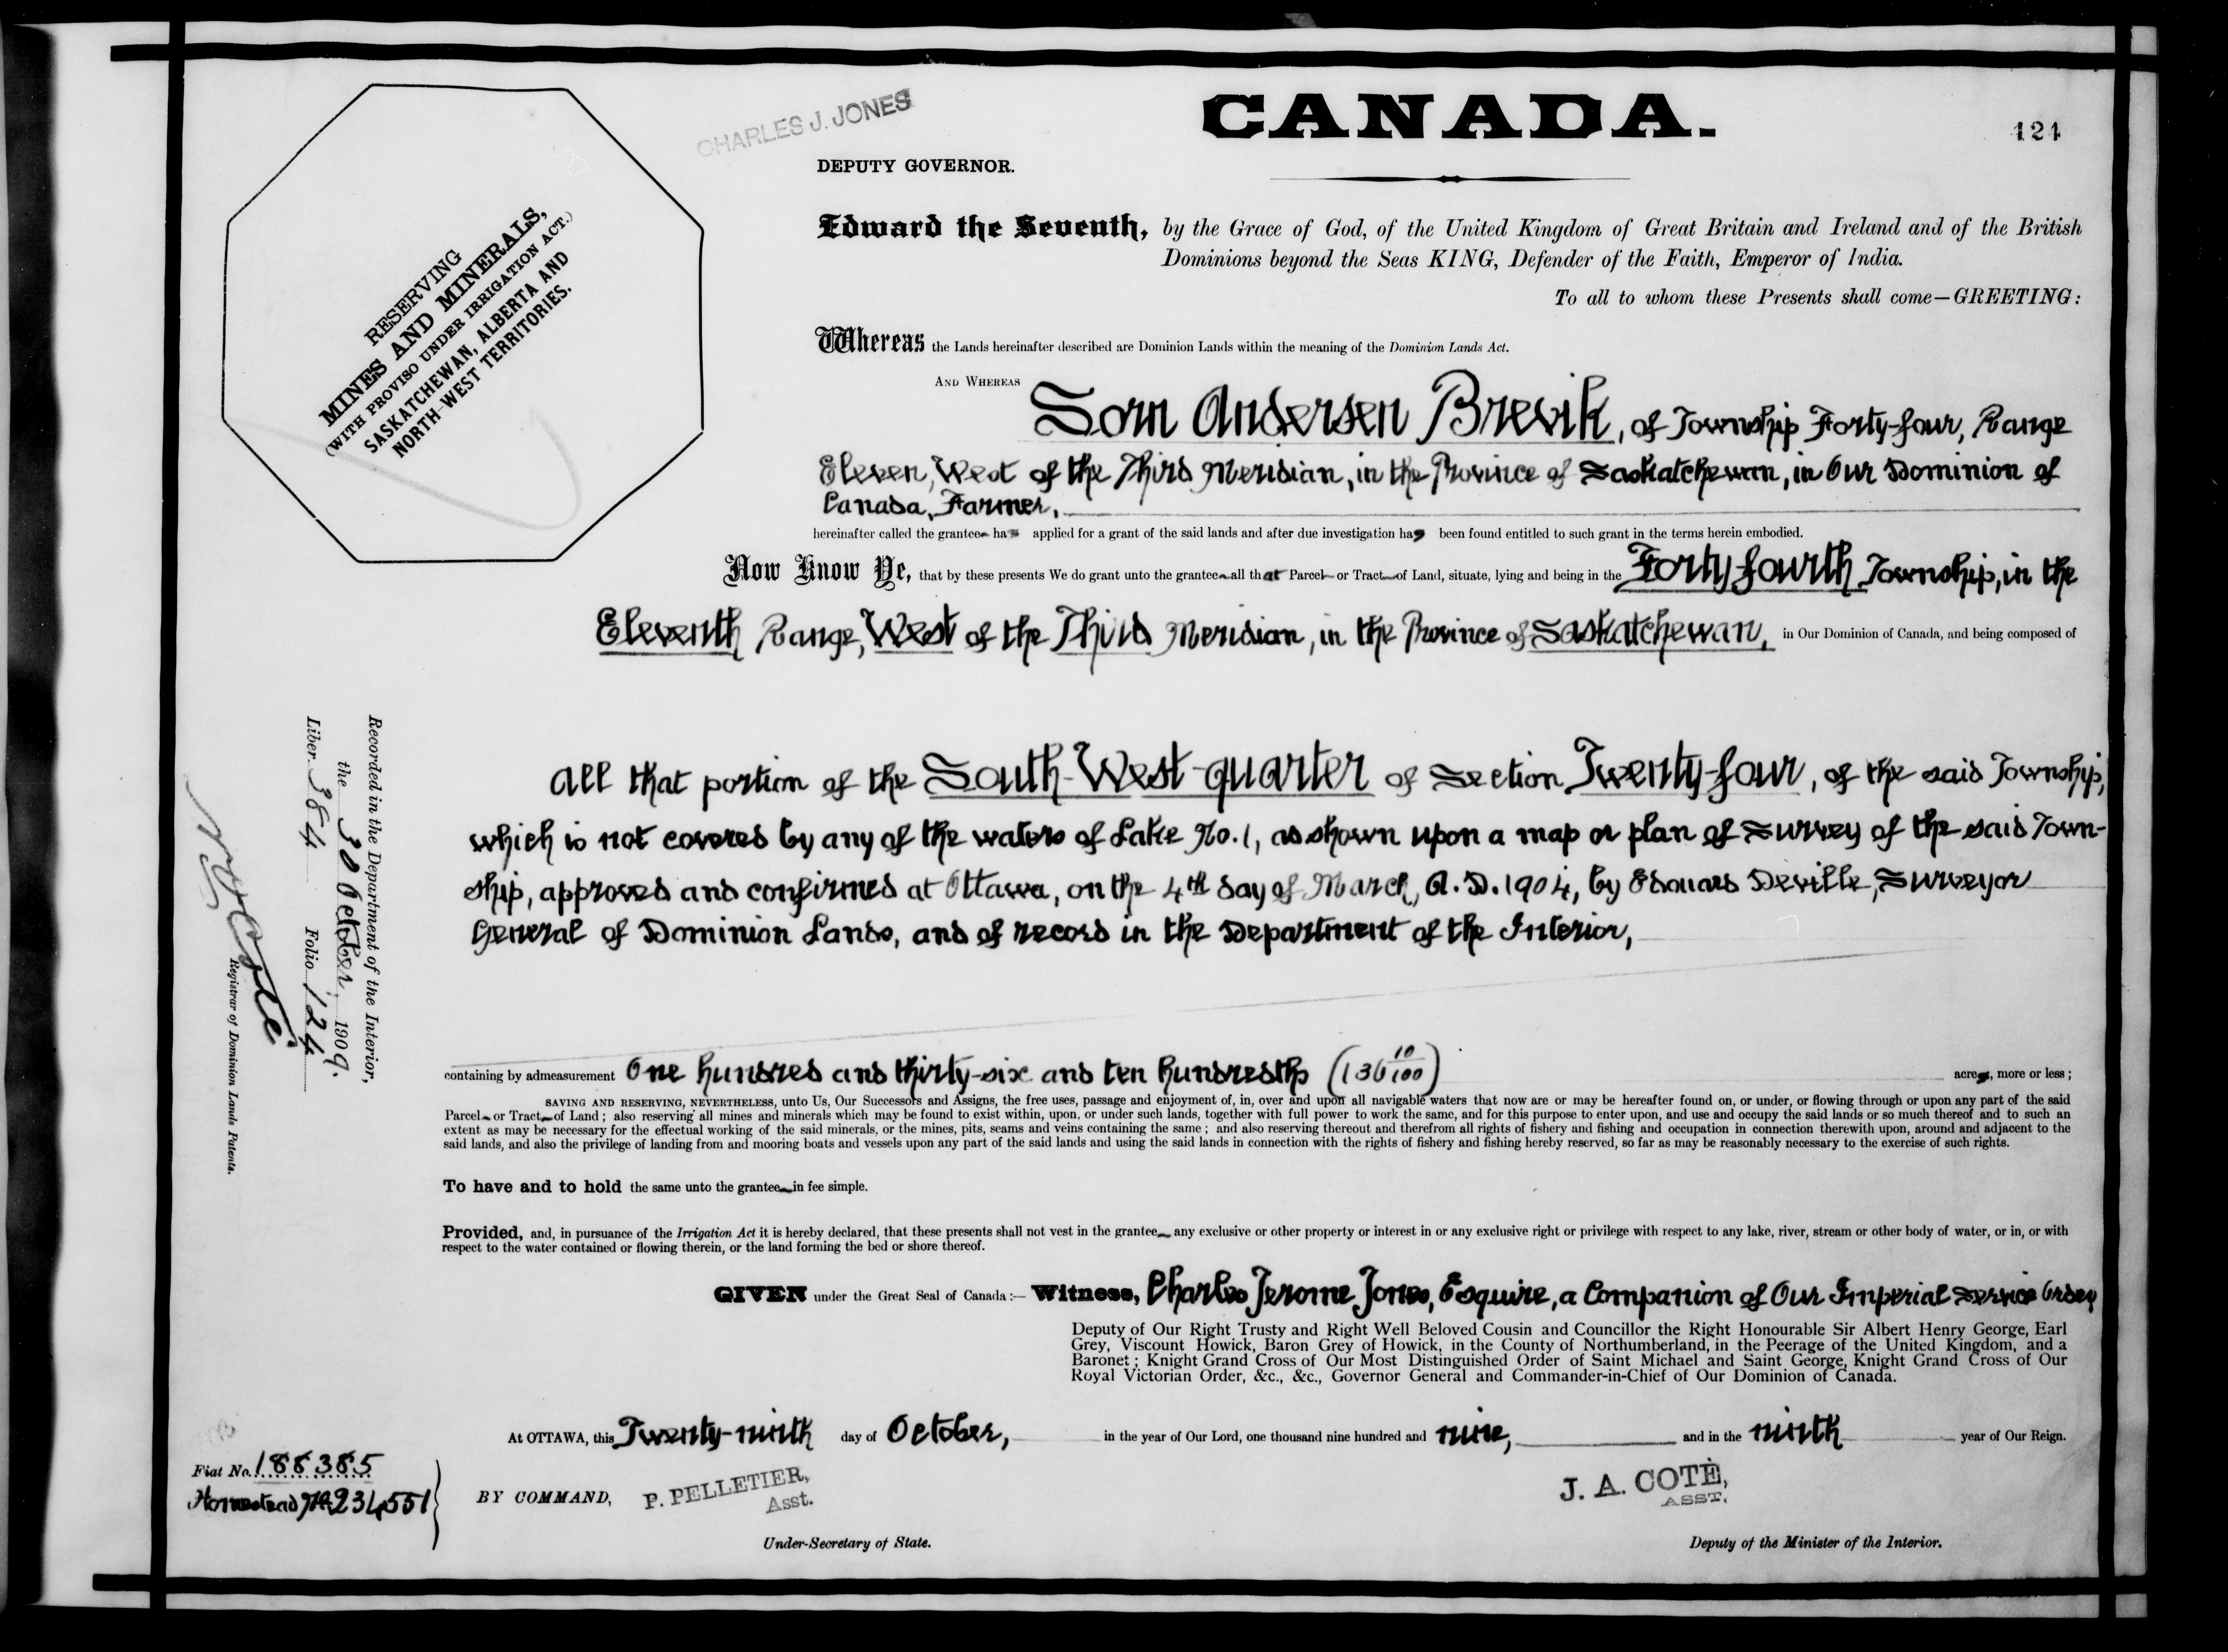 CHARLES J. JONES
CANADA.
124
DEPUTY GOVERNOR.
RESERVING
MINES AND MINERALS,
(WITH PROVISO UNDER IRRIGATION ACT.)
SASKATCHEWAN, ALBERTA AND
NORTH-WEST TERRITORIES.
Edward the Seventh, by the Grace of God, of the United Kingdom of Great Britain and Ireland and of the British
Dominions beyond the Seas KING, Defender of the Faith, Emperor of India.
To all to whom these Presents shall come—GREETING:
Whereas the Lands hereinafter described are Dominion Lands within the meaning of the Dominion Lands Act.
AND WHEREAS Sorn Andersen Brevik, of Township Forty-four, Range
Eleven, West of the Third Meridian, in the Province of Saskatchewan, in Our Dominion of
Canada, Farmer,
hereinafter called the grantee has applied for a grant of the said lands and after due investigation has been found entitled to such grant in the terms herein embodied.
Now Know Ye, that by these presents We do grant unto the grantee all that Parcel or Tract of Land, situate, lying and being in the Forty-fourth Township, in the
Eleventh Range, West of the Third Meridian, in the Province of Saskatchewan, in Our Dominion of Canada, and being composed of
All that portion of the South-West-quarter of Section Twenty-four, of the said Township,
which is not covered by any of the waters of Lake No. 1, as shown upon a map or plan of Survey of the said Town-
ship, approved and confirmed at Ottawa, on the 4th day of March, A.D. 1904, by Edouard Deville, Surveyor
General of Dominion Lands, and of record in the Department of the Interior,
Recorded in the Department of the Interior,
the 30 October 1909.
Liber 384 Folio 124
Registrar of Dominion Lands Patents.
containing by admeasurement One hundred and thirty-six and ten hundredths (136 10/100) acres, more or less;
SAVING AND RESERVING, NEVERTHELESS, unto Us, Our Successors and Assigns, the free uses, passage and enjoyment of, in, over and upon all navigable waters that now are or may be hereafter found on, or under, or flowing through or upon any part of the said
Parcel or Tract of Land; also reserving all mines and minerals which may be found to exist within, upon, or under such lands, together with full power to work the same, and for this purpose to enter upon, and use and occupy the said lands or so much thereof and to such an
extent as may be necessary for the effectual working of the said minerals, or the mines, pits, seams and veins containing the same; and also reserving thereout and therefrom all rights of fishery and fishing and occupation in connection therewith upon, around and adjacent to the
said lands, and also the privilege of landing from and mooring boats and vessels upon any part of the said lands and using the said lands in connection with the rights of fishery and fishing hereby reserved, so far as may be reasonably necessary to the exercise of such rights.
To have and to hold the same unto the grantee in fee simple.
Provided, and, in pursuance of the Irrigation Act it is hereby declared, that these presents shall not vest in the grantee any exclusive or other property or interest in or any exclusive right or privilege with respect to any lake, river, stream or other body of water, or in, or with
respect to the water contained or flowing therein, or the land forming the bed or shore thereof.
GIVEN under the Great Seal of Canada:— Witness, Charles Jerome Jones, Esquire, a Companion of Our Imperial Service Order,
Deputy of Our Right Trusty and Right Well Beloved Cousin and Councillor the Right Honourable Sir Albert Henry George, Earl
Grey, Viscount Howick, Baron Grey of Howick, in the County of Northumberland, in the Peerage of the United Kingdom, and a
Baronet; Knight Grand Cross of Our Most Distinguished Order of Saint Michael and Saint George, Knight Grand Cross of Our
Royal Victorian Order, &c., &c., Governor General and Commander-in-Chief of Our Dominion of Canada.
At OTTAWA, this Twenty-ninth day of October, in the year of Our Lord, one thousand nine hundred and nine, and in the ninth year of Our Reign.
Fiat No. 188385
Homestead No. 234551
BY COMMAND, P. PELLETIER, Asst.
J. A. COTÉ, ASST.
Under-Secretary of State.
Deputy of the Minister of the Interior.